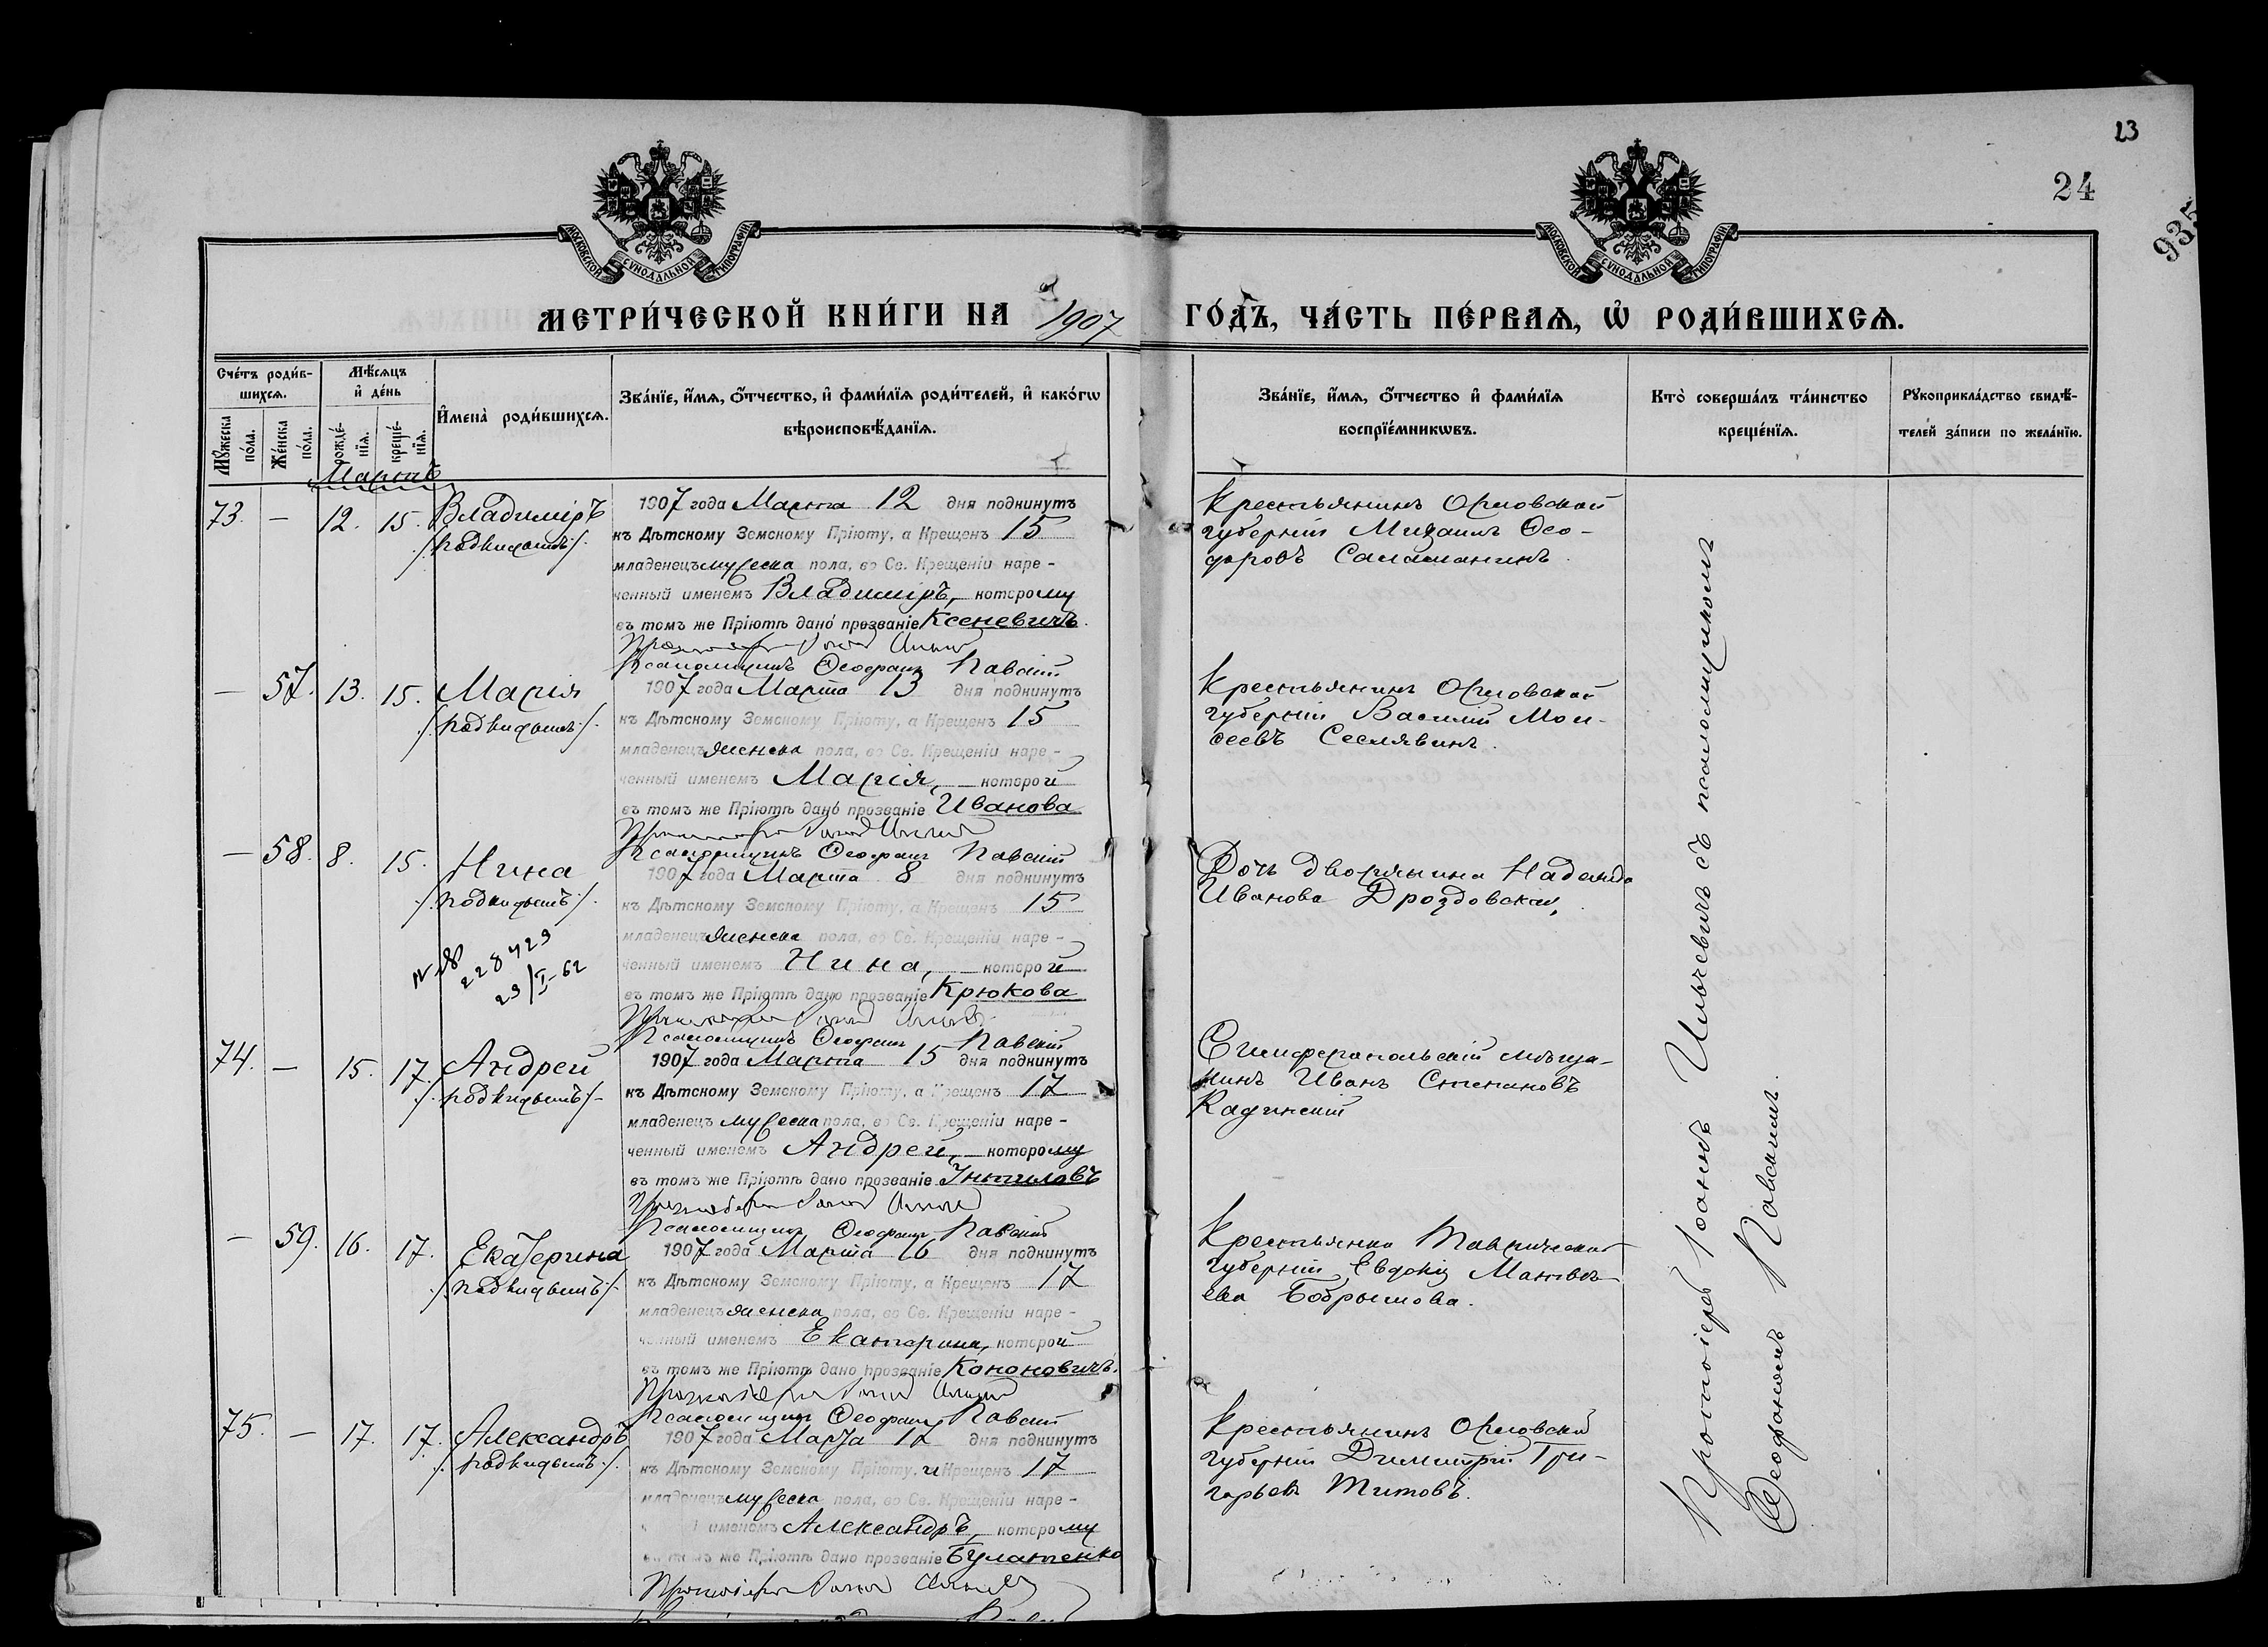 23
24
935
МОСКОВСКОЙ СѴНОДАЛЬНОЙ ТИПОГРАФІИ
МОСКОВСКОЙ СѴНОДАЛЬНОЙ ТИПОГРАФІИ
МЕТРИ́ЧЕСКОЙ КНИ́ГИ НА 1907 ГО́ДЪ, ЧА́СТЬ ПЕ́РВАѦ, Ѡ҆ РОДИ́ВШИХСѦ.
Сче́тъ роди́в-
шихсѧ.
Мꙋ́жеска по́ла.
Же́нска по́ла.
Мѣ́сѧцъ
и҆ де́нь
рожде́-
нїѧ.
креще́-
нїѧ.
И҆мена̀ роди́вшихсѧ.
Зва́нїе, и҆́мѧ, ѻ҆́тчество, и҆ фами́лїѧ роди́телей, и҆ како́гѡ
вѣроисповѣ́данїѧ.
Зва́нїе, и҆́мѧ, ѻ҆́тчество и҆ фами́лїѧ
воспрїе́мникѡвъ.
Кто̀ соверша́лъ та́инство
креще́нїѧ.
Рꙋкоприкла́дство свидѣ́-
телей за́писи по жела́нїю.
Мартъ
73. — 12. 15. Владиміръ
/подкидышъ/.
1907 года Марта 12 дня подкинутъ
къ Дѣтскому Земскому Пріюту, а Крещенъ 15
младенецъ мужеска пола, во Св. Крещеніи наре-
ченный именемъ Владиміръ, которому
въ томъ же Пріютѣ дано прозваніе Ксеневичъ.
Псаломщикъ Ѳеофанъ Павскій
Крестьянинъ Орловской
губерніи Михаилъ Ѳео-
доровъ Саламатинъ.
— 57. 13. 15. Марія
/подкидышъ/.
1907 года Марта 13 дня подкинутъ
къ Дѣтскому Земскому Пріюту, а Крещенъ 15
младенецъ женска пола, во Св. Крещеніи наре-
ченный именемъ Марія, которой
въ томъ же Пріютѣ дано прозваніе Иванова
Псаломщикъ Ѳеофанъ Павскій
Крестьянинъ Орловской
губерніи Василій Мои-
сеевъ Сеславинъ.
— 58. 8. 15. Нина
/подкидышъ/.
№ 228429
29/I-62
1907 года Марта 8 дня подкинутъ
къ Дѣтскому Земскому Пріюту, а Крещенъ 15
младенецъ женска пола, во Св. Крещеніи наре-
ченный именемъ Нина, которой
въ томъ же Пріютѣ дано прозваніе Крюкова
Псаломщикъ Ѳеофанъ Павскій
Дочь дворянина Надежда
Иванова Дроздовская.
74. — 15. 17. Андрей
/подкидышъ/.
1907 года Марта 15 дня подкинутъ
къ Дѣтскому Земскому Пріюту, а Крещенъ 17
младенецъ мужеска пола, во Св. Крещеніи наре-
ченный именемъ Андрей, которому
въ томъ же Пріютѣ дано прозваніе
Псаломщикъ Ѳеофанъ Павскій
Симферопольскій мѣща-
нинъ Иванъ Степановъ
— 59. 16. 17. Екатерина
/подкидышъ/.
1907 года Марта 16 дня подкинутъ
къ Дѣтскому Земскому Пріюту, а Крещенъ 17
младенецъ женска пола, во Св. Крещеніи наре-
ченный именемъ Екатерина, которой
въ томъ же Пріютѣ дано прозваніе Кононовичъ.
Псаломщикъ Ѳеофанъ Павскій
Крестьянка Таврической
губерніи Евдокія Матвѣ-
ева Бобрышова.
75. — 17. 17. Александръ
/подкидышъ/.
1907 года Марта 17 дня подкинутъ
къ Дѣтскому Земскому Пріюту, и Крещенъ 17
младенецъ мужеска пола, во Св. Крещеніи наре-
именемъ Александръ, которому
въ томъ же Пріютѣ дано прозваніе Булатенко
Крестьянинъ Орловской
губерніи Димитрій Гри-
горьевъ Титовъ.
Протоіерей Іоаннъ Ильчевичъ съ псаломщикомъ
Ѳеофаномъ Павскимъ.